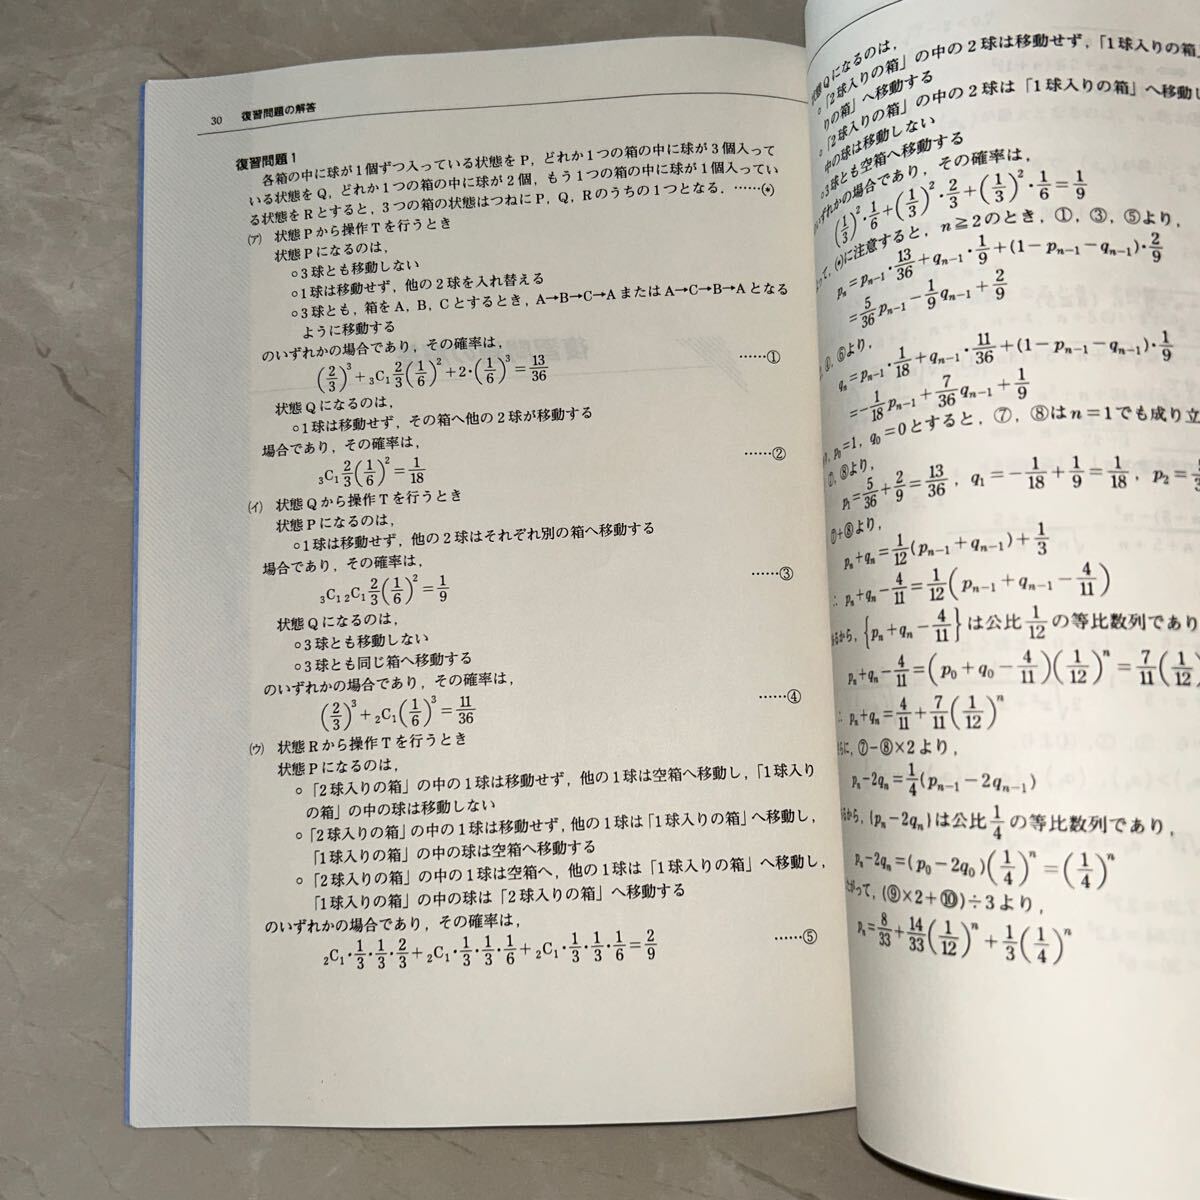 30 復習問題の解答
復習問題1
各箱の中に球が1個ずつ入っている状態をP，どれか1つの箱の中に球が3個入って
いる状態をQ，どれか1つの箱の中に球が2個，もう1つの箱の中に球が1個入ってい
る状態をRとすると，3つの箱の状態はつねにP，Q，Rのうちの1つとなる．……(*)
(ア) 状態Pから操作Tを行うとき
状態Pになるのは，
○3球とも移動しない
○1球は移動せず，他の2球を入れ替える
○3球とも，箱をA，B，Cとするとき，A→B→C→AまたはA→C→B→Aとなる
ように移動する
のいずれかの場合であり，その確率は，
(2/3)^3+₃C₁2/3(1/6)^2+2・(1/6)^3=13/36 ……①
状態Qになるのは，
○1球は移動せず，その箱へ他の2球が移動する
場合であり，その確率は，
₃C₁2/3(1/6)^2=1/18 ……②
(イ) 状態Qから操作Tを行うとき
状態Pになるのは，
○1球は移動せず，他の2球はそれぞれ別の箱へ移動する
場合であり，その確率は，
₃C₁₂C₁2/3(1/6)^2=1/9 ……③
状態Qになるのは，
○3球とも移動しない
○3球とも同じ箱へ移動する
のいずれかの場合であり，その確率は，
(2/3)^3+₂C₁(1/6)^3=11/36 ……④
(ウ) 状態Rから操作Tを行うとき
状態Pになるのは，
○「2球入りの箱」の中の1球は移動せず，他の1球は空箱へ移動し，「1球入り
の箱」の中の球は移動しない
○「2球入りの箱」の中の1球は移動せず，他の1球は「1球入りの箱」へ移動し，
「1球入りの箱」の中の球は空箱へ移動する
○「2球入りの箱」の中の1球は空箱へ，他の1球は「1球入りの箱」へ移動し，
「1球入りの箱」の中の球は「2球入りの箱」へ移動する
のいずれかの場合であり，その確率は，
₂C₁・1/3・1/3・2/3+₂C₁・1/3・1/3・1/6+₂C₁・1/3・1/3・1/6=2/9 ……⑤
状態Qになるのは，
○「2球入りの箱」の中の2球は移動せず，「1球入りの箱」
りの箱」へ移動する
○「2球入りの箱」の中の2球は「1球入りの箱」へ移動し
中の球は移動しない
○3球とも空箱へ移動する
のいずれかの場合であり，その確率は，
(1/3)^2・1/6+(1/3)^2・2/3+(1/3)^2・1/6=1/9
よって，(*)に注意すると，n≧2のとき，①，③，⑤より，
pₙ=pₙ₋₁・13/36+qₙ₋₁・1/9+(1−pₙ₋₁−qₙ₋₁)・2/9
=5/36pₙ₋₁−1/9qₙ₋₁+2/9
④，⑥より，
qₙ=pₙ₋₁・1/18+qₙ₋₁・11/36+(1−pₙ₋₁−qₙ₋₁)・1/9
=−1/18pₙ₋₁+7/36qₙ₋₁+1/9
p₀=1，q₀=0とすると，⑦，⑧はn=1でも成り立
⑧より，
p₁=5/36+2/9=13/36，q₁=−1/18+1/9=1/18，p₂=
⑦+⑧より，
pₙ+qₙ=1/12(pₙ₋₁+qₙ₋₁)+1/3
∴ pₙ+qₙ−4/11=1/12(pₙ₋₁+qₙ₋₁−4/11)
るから，{pₙ+qₙ−4/11}は公比1/12の等比数列であり
pₙ+qₙ−4/11=(p₀+q₀−4/11)(1/12)^n=7/11(1/12)
∴ pₙ+qₙ=4/11+7/11(1/12)^n
らに，⑦−⑧×2より，
pₙ−2qₙ=1/4(pₙ₋₁−2qₙ₋₁)
るから，{pₙ−2qₙ}は公比1/4の等比数列であり，
pₙ−2qₙ=(p₀−2q₀)(1/4)^n=(1/4)^n
たがって，(⑨×2+⑩)÷3より，
pₙ=8/33+14/33(1/12)^n+1/3(1/4)^n